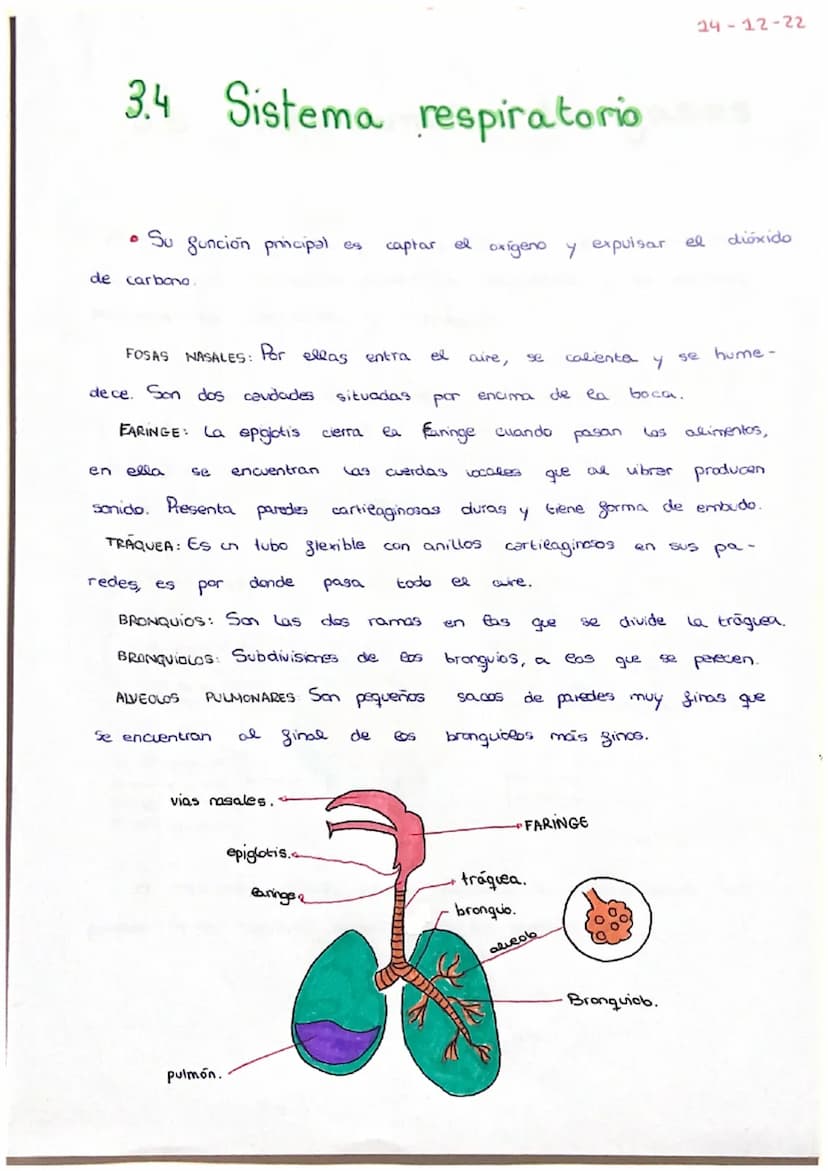 14-12-22
3.4 Sistema respiratorio
• Su función principal es captar el oxígeno y expulsar el dióxido
de carbono.
FOSAS NASALES: Por ellas entra el aire, se calienta y se hume-
dece. Son dos cavidades situadas por encima de la boca.
LARINGE: La epiglotis cierra la laringe cuando pasan los alimentos,
en ella se encuentran las cuerdas vocales que al vibrar producen
sonido. Presenta paredes cartilaginosas duras y tiene forma de embudo.
TRÁQUEA: Es un tubo flexible con anillos cartilaginosos en sus pa-
redes, es por donde pasa todo el aire.
BRONQUIOS: Son las dos ramas en las que se divide la tráquea.
BRONQUIOLOS: Subdivisiones de los bronquios, a los que se parecen.
ALVEOLOS PULMONARES: Son pequeños sacos de paredes muy finas que
se encuentran al final de los bronquiolos más finos.
vías nasales.
FARINGE
epiglotis.
laringe
tráquea.
bronquio.
alveolo
Bronquiolo.
pulmón.